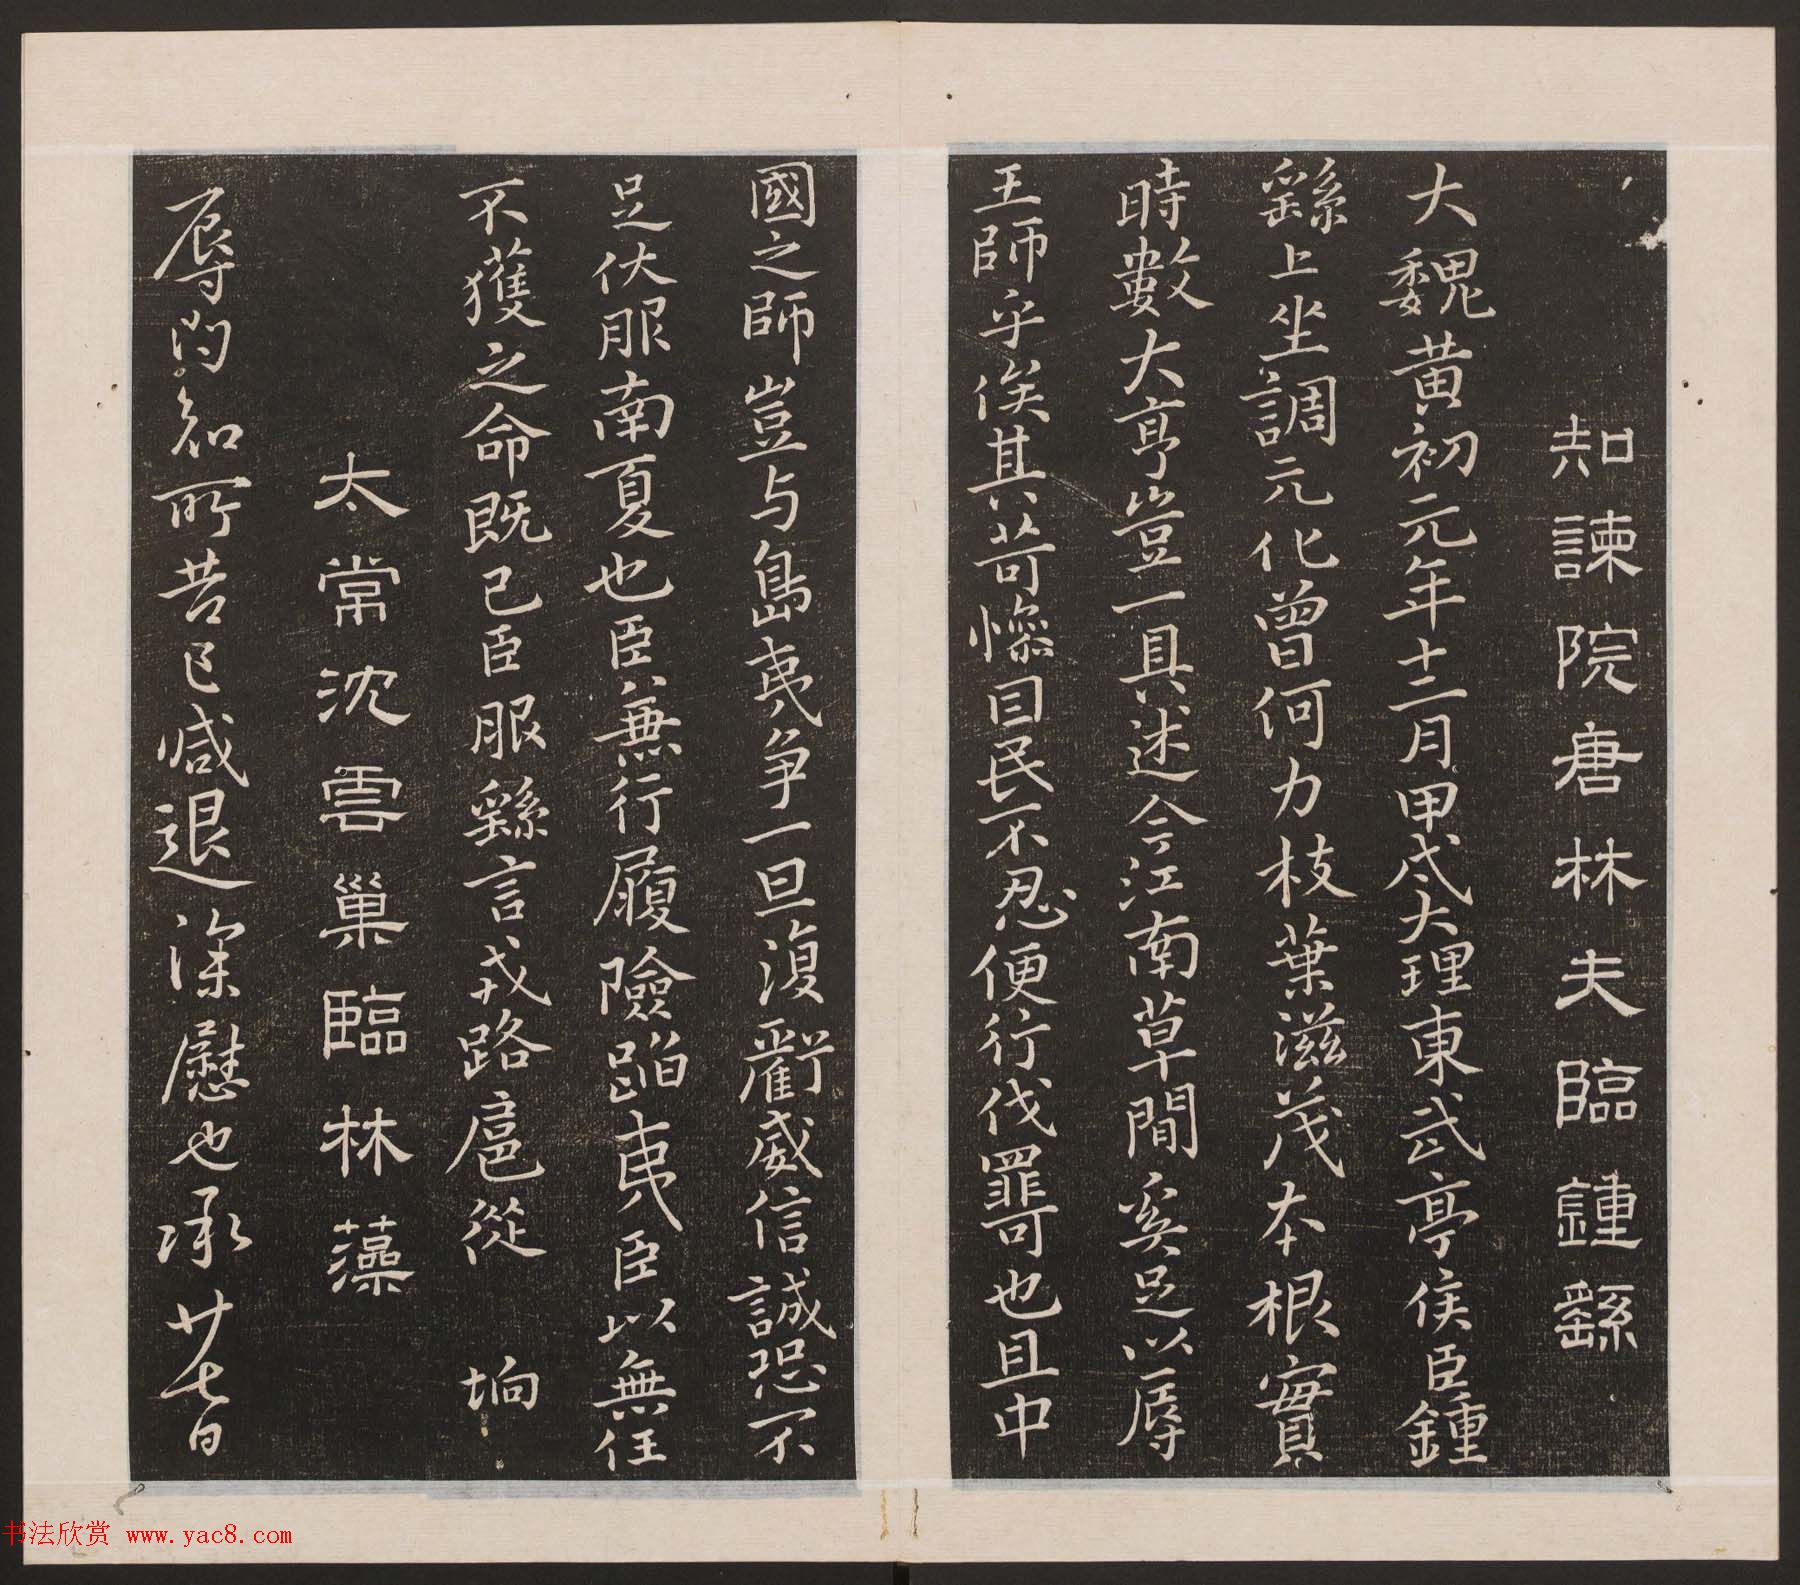 知諫院唐林夫臨鍾繇
大魏黃初元年十二月甲戌大理東武亭侯臣鍾
繇上坐調元化曾何力枝葉滋茂本根實
時數大亨豈一具述今江南草間奚足以辱
王師乎俟其苛慘目民不忍便行伐罪可也且中
國之師豈与島夷争一旦復虧威信誠恐不
足伏服南夏也臣無行履險蹈夷臣以無任
不獲之命既已臣服繇言戎路扈從 坰
太常沈雲巢臨林藻
辱問知所苦已減退深慰也承廿七日
书法欣赏 www.yac8.com